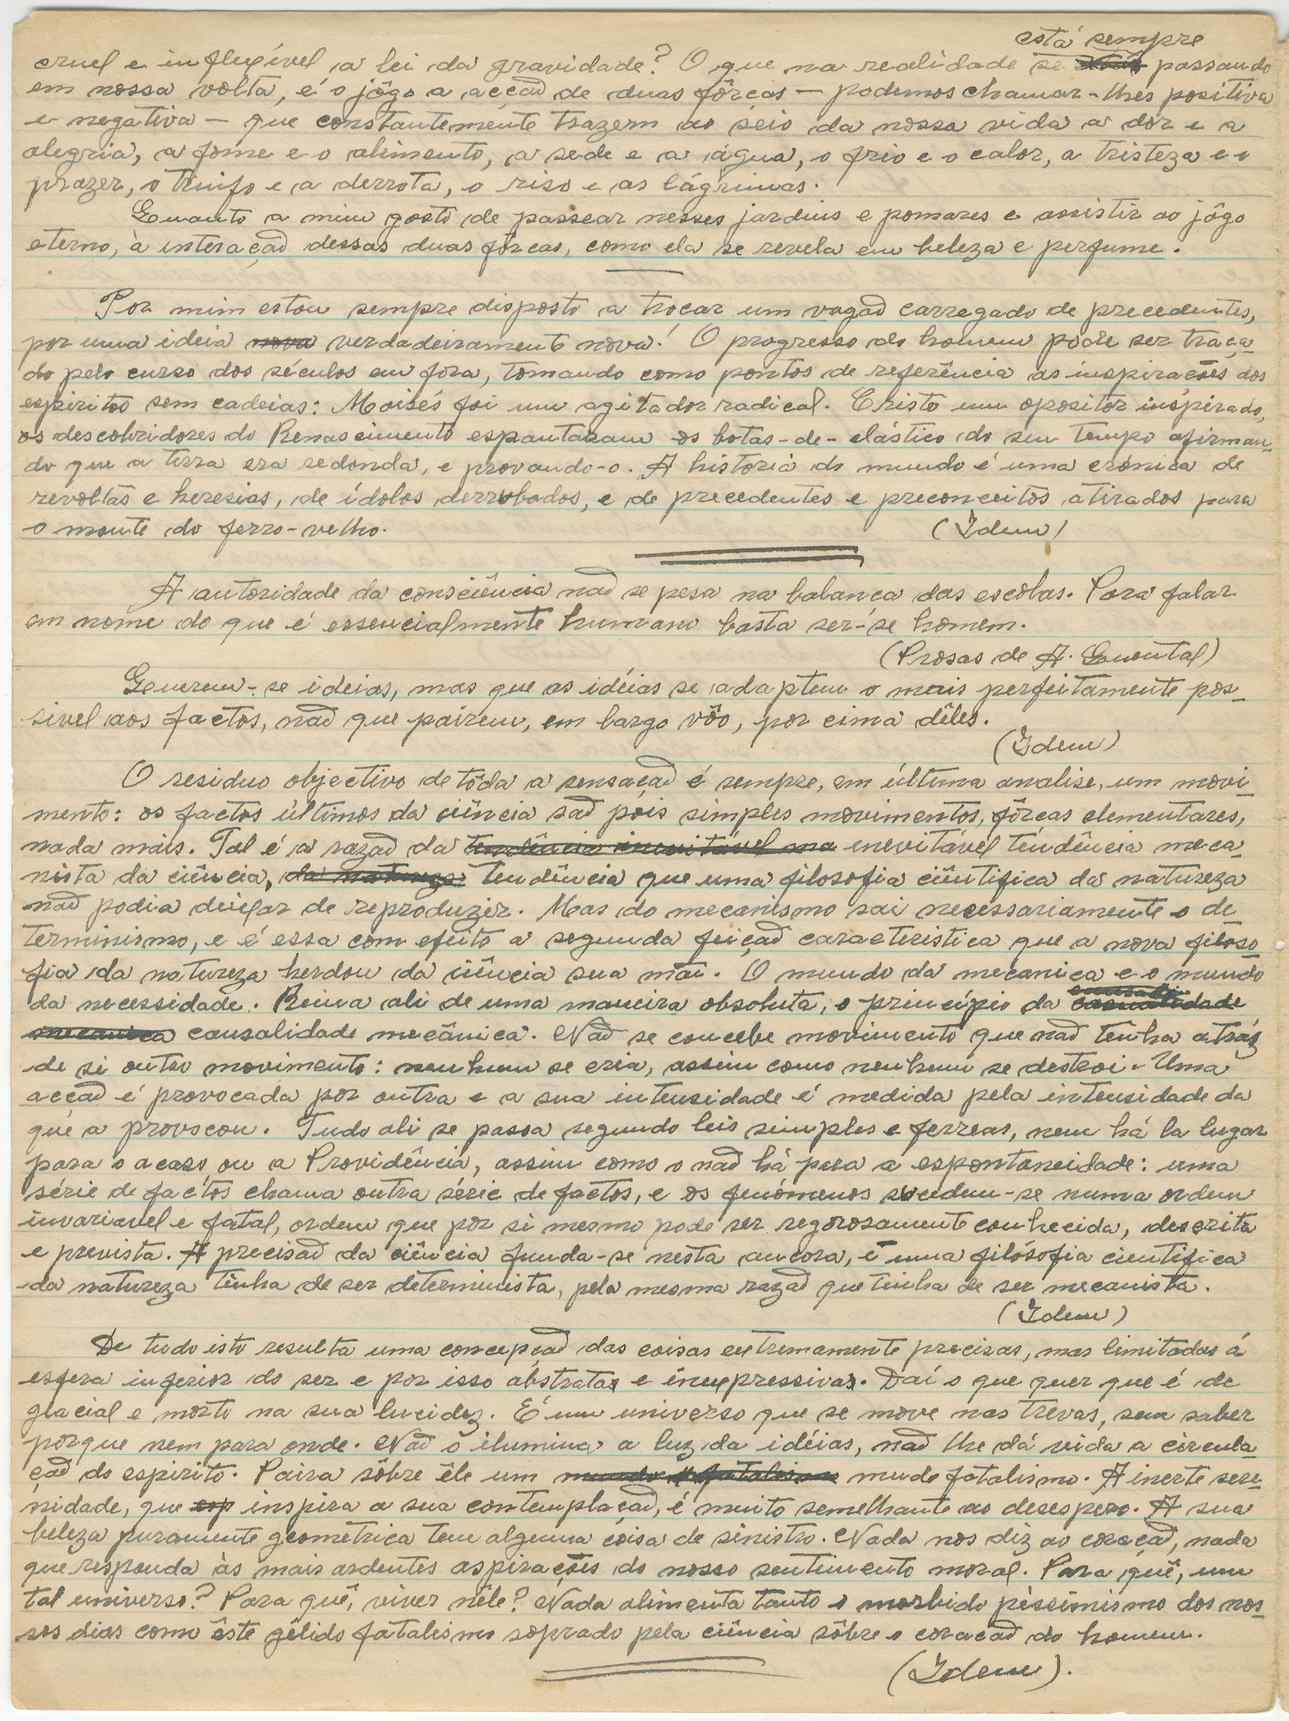 está sempre
cruel e inflexível a lei da gravidade? O que na realidade se passando
em nossa volta, é o jôgo a acção de duas fôrças — podemos chamar-lhes positiva
e negativa — que constantemente trazem ao seio da nossa vida a dor e a
alegria, a fome e o alimento, a sede e a água, o frio e o calor, a tristeza e o
prazer, o triunfo e a derrota, o riso e as lágrimas.
Quanto a mim gosto de passear nesses jardins e pomares e assistir ao jôgo
eterno, à interação dessas duas fôrças, como ela se revela em beleza e perfume.
Por mim estou sempre disposto a trocar um vagão carregado de precedentes,
por uma ideia nova verdadeiramente nova! O progresso do homem pode ser traça-
do pelo curso dos séculos em fora, tomando como pontos de referência as inspirações dos
espíritos sem cadeias: Moisés foi um agitador radical. Cristo um opositor inspirado,
os descobridores do Renascimento espantaram os botas-de-elástico do seu tempo afirman-
do que a terra era redonda, e provando-o. A historia do mundo é uma crónica de
revoltas e heresias, de ídolos derrubados, e de precedentes e preconceitos atirados para
o monte do ferro-velho. (Idem)
A autoridade da consciência não se pesa na balança das escolas. Para falar
em nome do que é essencialmente humano basta ser-se homem.
(Prosas de A. Quental)
Generem-se ideias, mas que as idéias se adaptem o mais perfeitamente pos-
sivel aos factos, não que pairem, em largo vôo, por cima dêles.
(Idem)
O residuo objectivo de tôda a sensação é sempre, em última analise, um movi-
mento: os factos últimos da ciência são pois simples movimentos, fôrças elementares,
nada mais. Tal é a razão da tendência inevitável ma inevitável tendência meca-
nista da ciência, da natureza tendência que uma filosofia ciêntifica da natureza
não podia deixar de reproduzir. Mas do mecanismo sai necessariamente o de-
terminismo, e é essa com efeito a segunda feição caracteristica que a nova filoso-
fia da natureza herdou da ciência sua mãi. O mundo da mecanica e o mundo
da necessidade. Reina ali de uma maneira absoluta, o princípio da casualidade
mecanica causalidade mecânica. Não se concebe movimento que não tenha atráz
de si outro movimento: nenhum se cria, assim como nenhum se destroi. Uma
acção é provocada por outra e a sua intensidade é medida pela intensidade da
que a provocou. Tudo ali se passa segundo leis simples e ferreas, nem há la lugar
para o acaso ou a Providência, assim como o não há para a espontaneidade: uma
série de factos chama outra série de factos, e os fenómenos sucedem-se numa ordem
invariavel e fatal, ordem que por si mesmo pode ser regorosamente conhecida, descrita
e prevista. A precisão da ciência funda-se nesta ancora, e uma filósofia cientifica
da natureza tinha de ser determinista, pela mesma razão que tinha de ser mecanista.
(Idem)
De tudo isto resulta uma concepção das coisas extremamente precisas, mas limitadas á
esfera inferior do ser e por isso abstratas e inexpressivas. Daí o que quer que é de
glacial e morto na sua lucidez. É um universo que se move nas trevas, sem saber
porque nem para onde. Não o ilumina a luz da idéias, não lhe dá vida a circula-
ção do espirito. Paira sôbre êle um mundo fatalismo mudo fatalismo. A inerte sere-
nidade, que esp inspira a sua contemplação, é muito semelhante ao desespero. A sua
beleza puramente geometrica tem alguma côisa de sinistro. Nada nos diz ao coração, nada
que responda às mais ardentes aspirações do nosso sentimento moral. Para quê, um
tal universo? Para quê, viver nêle? Nada alimenta tanto o morbido pessimismo dos nos-
sos dias como êste gélido fatalismo soprado pela ciência sôbre o coração do homem.
(Idem).